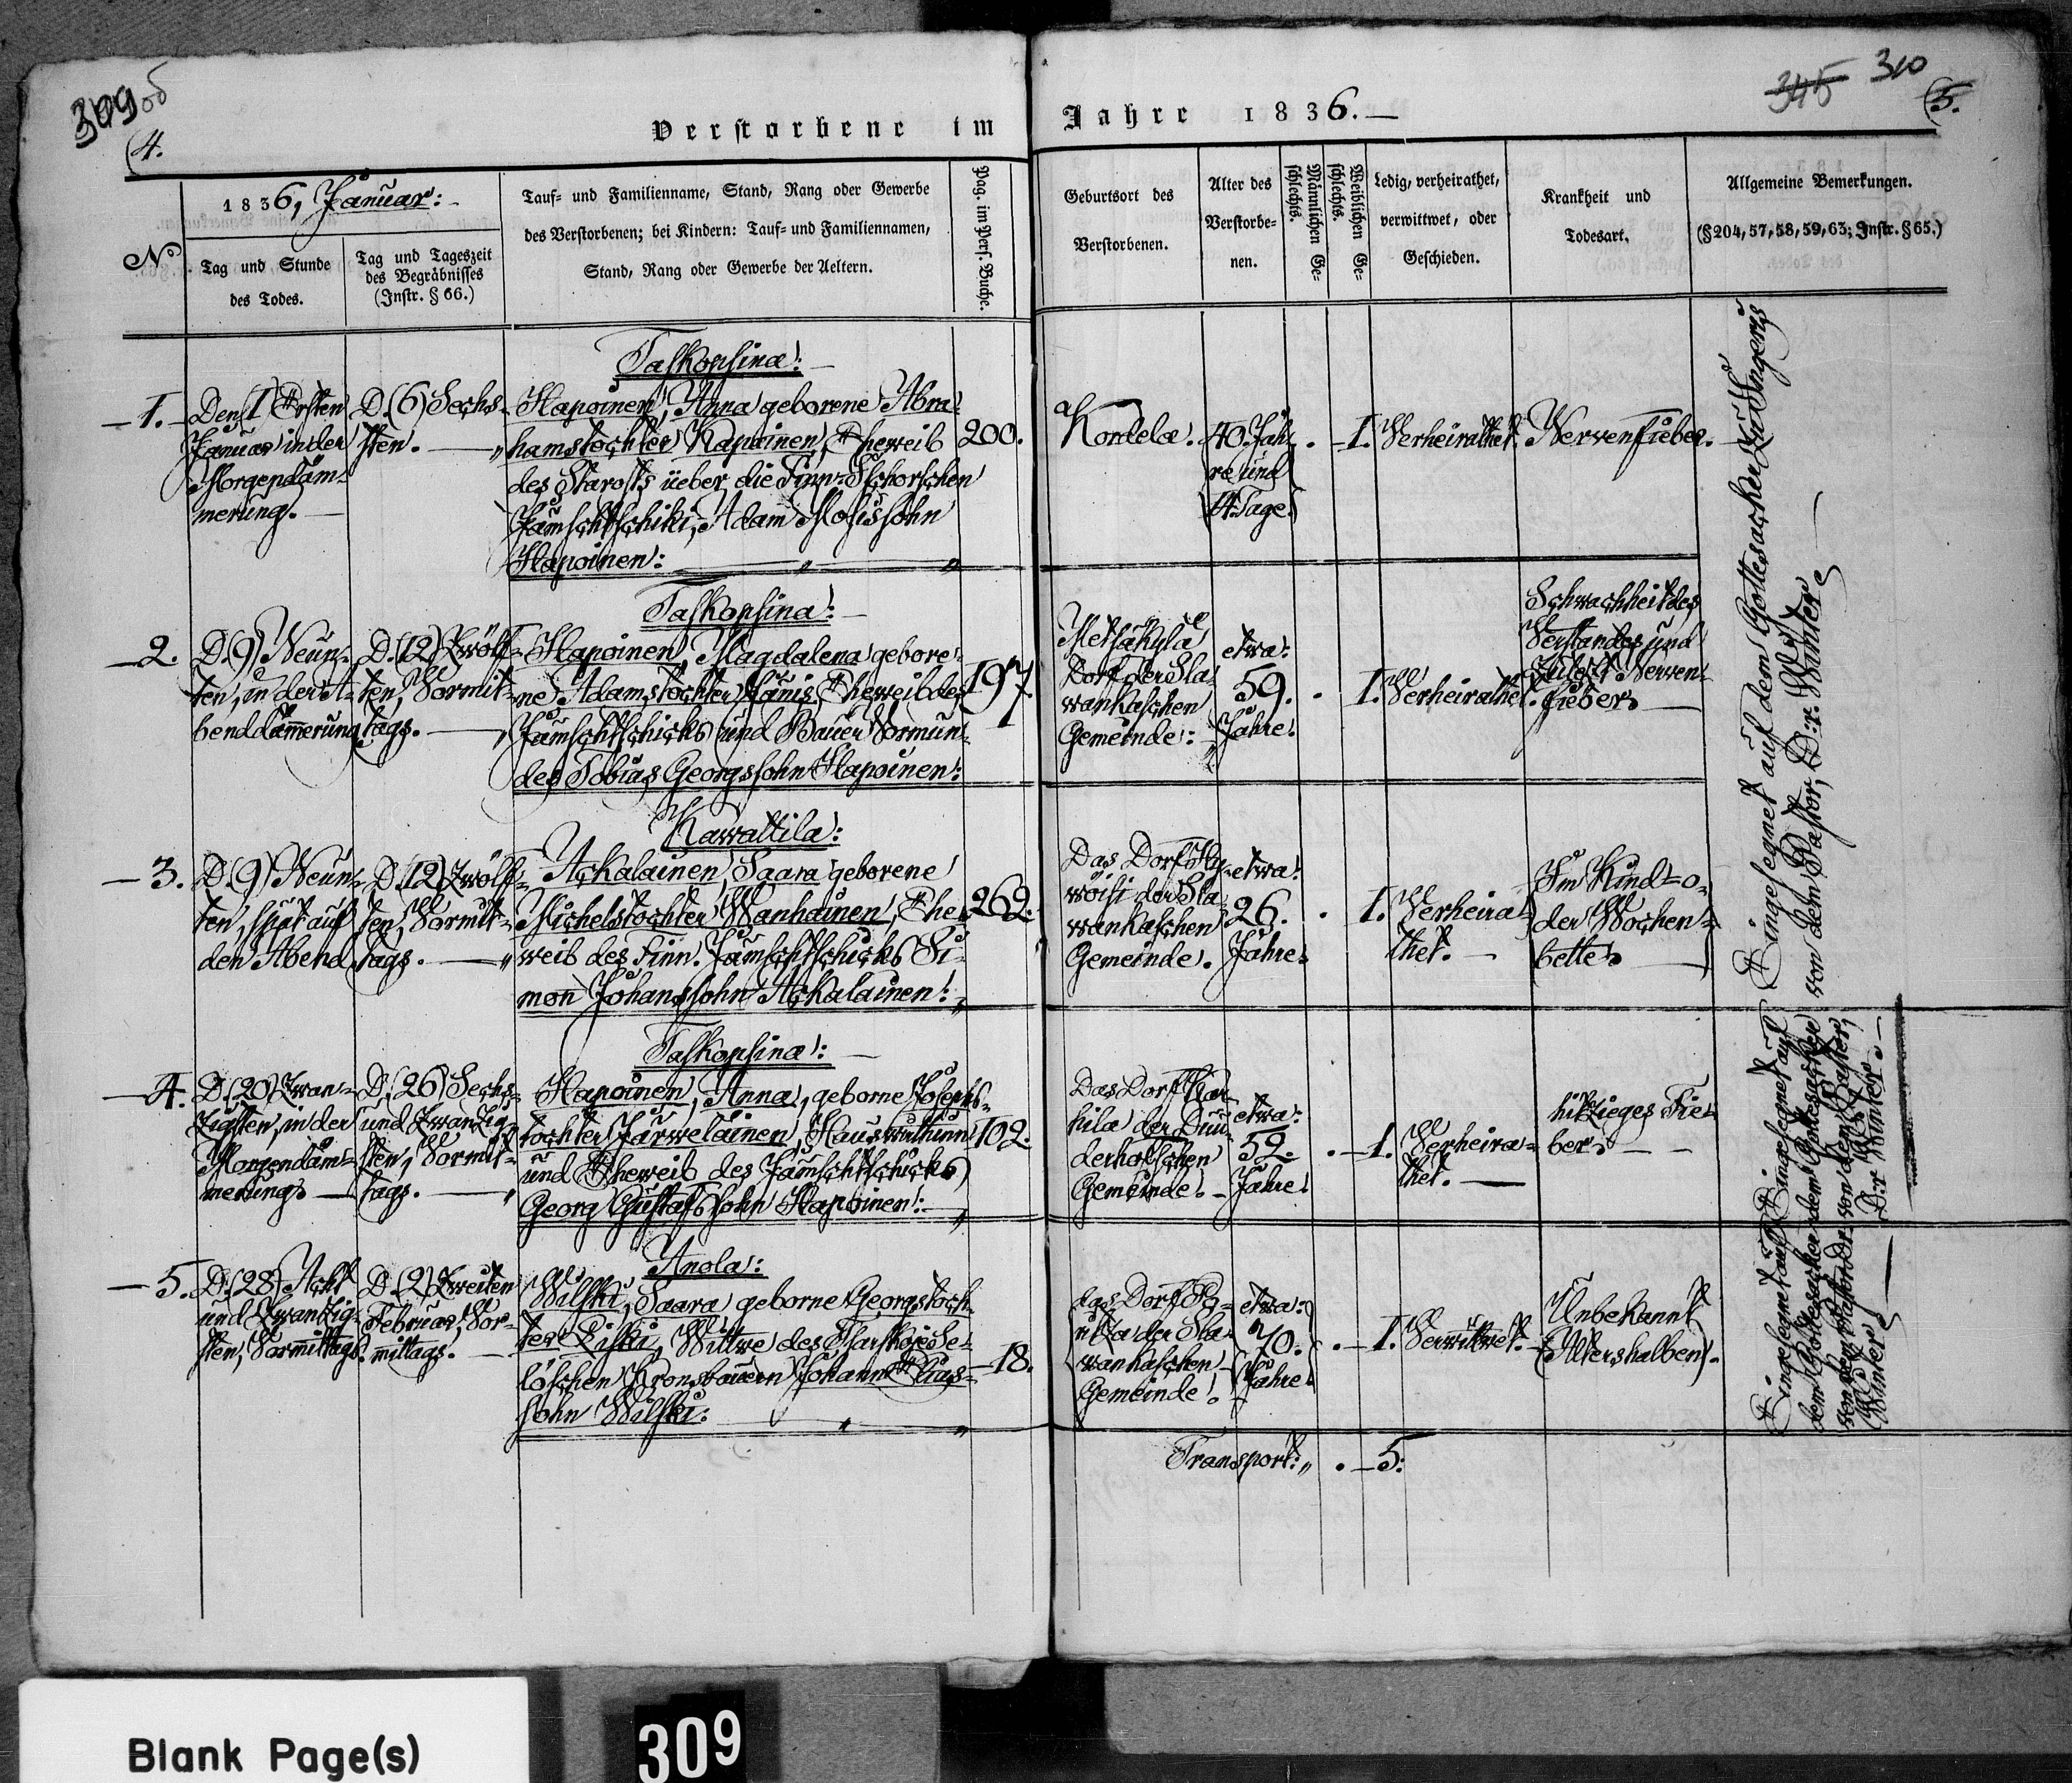 309 об
(4.
Verstorbene im Jahre 1836.—
345 310
(5.
1836, Januar:
No
Tag und Stunde
des Todes.
Tag und Tageszeit
des Begräbnisses
(Instr. § 66.)
Tauf- und Familienname, Stand, Rang oder Gewerbe
des Verstorbenen; bei Kindern: Tauf- und Familiennamen,
Stand, Rang oder Gewerbe der Aeltern.
Pag. im Pers. Buche.
Geburtsort des
Verstorbenen.
Alter des
Verstorbe-
nen.
Männlichen Ge-
schlechts.
Weiblichen Ge-
schlechts.
Ledig, verheirathet,
verwittwet, oder
Geschieden.
Krankheit und
Todesart.
Allgemeine Bemerkungen.
(§ 204, 57, 58, 59, 63; Instr. § 65.)
Taskopsina:
—1.—
Den (1) Ersten
Januar in der
Morgendäm-
merung.—
D. (6) Sechs-
sten.—
Hapoinen, Anna geborene Abra-
hamstochter Kapainen, Eheweib
des Starosts ueber die Finn-Ischorschen
Jämschtschiki, Adam Mosissohn
Hapoinen:
200.
Kordela.
40. Jah-
re und
14 Tage.
. —1.
Verheirathet.
Nervenfieber.
Taskopsina:
—2.
D. (9) Neun-
ten, in der A-
benddämerung
D. (12) Zwölf-
ten, Vormit-
tags.—
Hapoinen, Magdalena gebore-
ne Adamstochter Hänis, Eheweib des
Jämschtschicks und Bauer Vormun-
des Tobias Georgssohn Hapoinen:
197.
Metsäkylä
Dorf der Sla-
wankaschen
Gemeinde:
etwa:
59.
Jahre.
. 1.
Verheirathet.
Schwachheit des
Verstandes und
zuletzt Nerven-
fieber.
Kawattila:
—3.
D. (9) Neun-
ten, spät auf
den Abend
D. (12) Zwölf-
ten, Vormit-
tags.—
Ackalainen, Saara geborene
Michelstochter Wanhainen, Ehe-
weib des Finn. Jämschtschicks Si-
mon Johanssohn Ackalainen:
262.
Das Dorf Hy-
wöisi der Sla-
wankaschen
Gemeinde.
etwa:
26.
Jahre.
. 1.
Verheira-
thet.—
Im Kind- o-
der Wochen-
bette.
Taskopsina:
—4.
D. (20) Zwan-
zigsten, in der
Morgendäm-
merung.—
D. (26) Sechs
und Zwanzig-
sten, Vormit-
tags.—
Hapoinen, Anna, geborne Josephs-
tochter Järweläinen, Hauswirthinn
und Eheweib des Jämschtschicks
Georg Gustafssohn Hapoinen:
102.
Das Dorf Kar-
hila der Duu-
derhofschen
Gemeinde.—
etwa:
52.
Jahre.
. —1.
Verheira-
thet.—
hitzieges Fie-
ber.— —
Anola:
—5.
D. (28) Acht
und Zwanzig-
sten, Vormittags.
D. (2) Zweiten
Februar, Vor-
mittags.—
Wilski, Saara geborne Georgstoch-
ter Liski, Wittwe des Tsarskoje Se-
loschen Kronsbauern Johann Elias-
sohn Wilski:
—18.
das Dorf Po-
der Sla-
wankaschen
Gemeinde.
etwa:
70.
Jahre.
. —1.
Verwittwet.—
Unbekannt
(Altershalben).
Eingesegnet auf dem Gottesacker zu Ingeris
von dem Pastor, D:r. Winter.
Eingesegnet auf
dem Gottesacker
von dem Pastor,
D:r Winter.—
Eingesegnet auf
dem Gottesacker
von dem Pastor Dr.
Winter.—
Transport: . —5:
Blank Page(s)
309